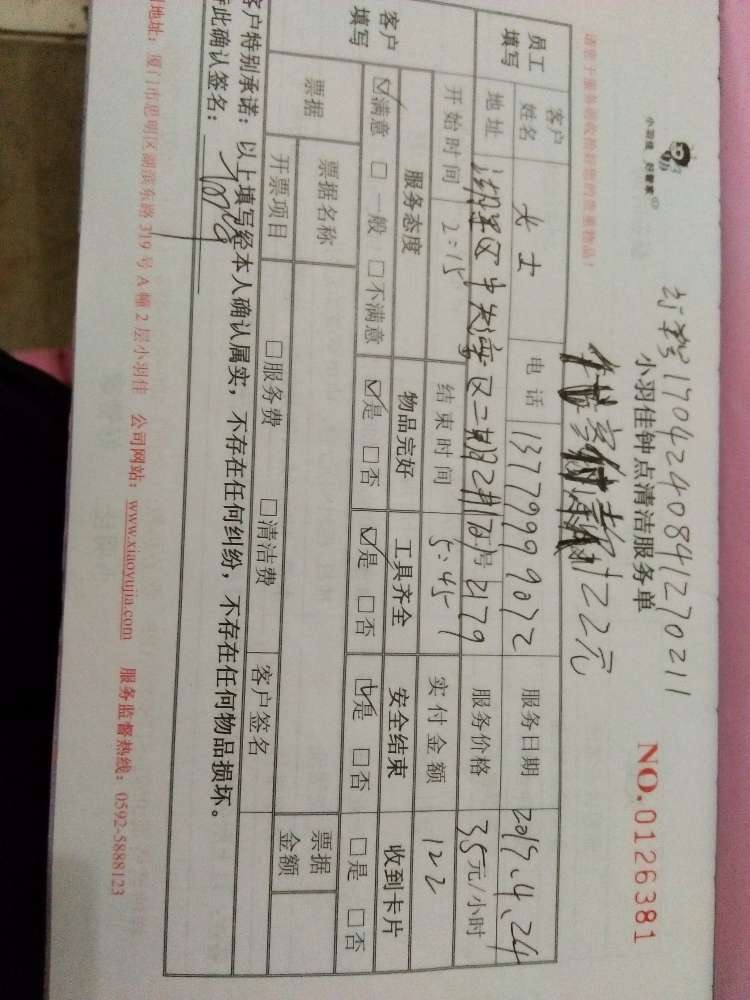 小羽佳 好管家
NO.0126381
1704240841270211
小羽佳钟点清洁服务单
请您于服务前收拾好您的贵重物品！
122元
员工填写
客户姓名 女士 电话 13779999072 服务日期 2019.4.24
地址 湖里区 区二期 号2179 服务价格 35元/小时
开始时间 2:15 结束时间 5:45 实付金额 122
客户填写
服务态度 物品完好 工具齐全 安全结束 收到卡片
☑满意 □一般 □不满意 ☑是 □否 ☑是 □否 ☑是 □否 □是 □否
票据 票据名称 票据金额
开票项目 □服务费 □清洁费 客户签名
客户特别承诺：以上填写经本人确认属实，不存在任何纠纷，不存在任何物品损坏。
此确认签名：
地址：厦门市思明区湖滨东路319号A幢2层小羽佳 公司网站：www.xiaoyujia.com 服务监督热线：0592-5888123